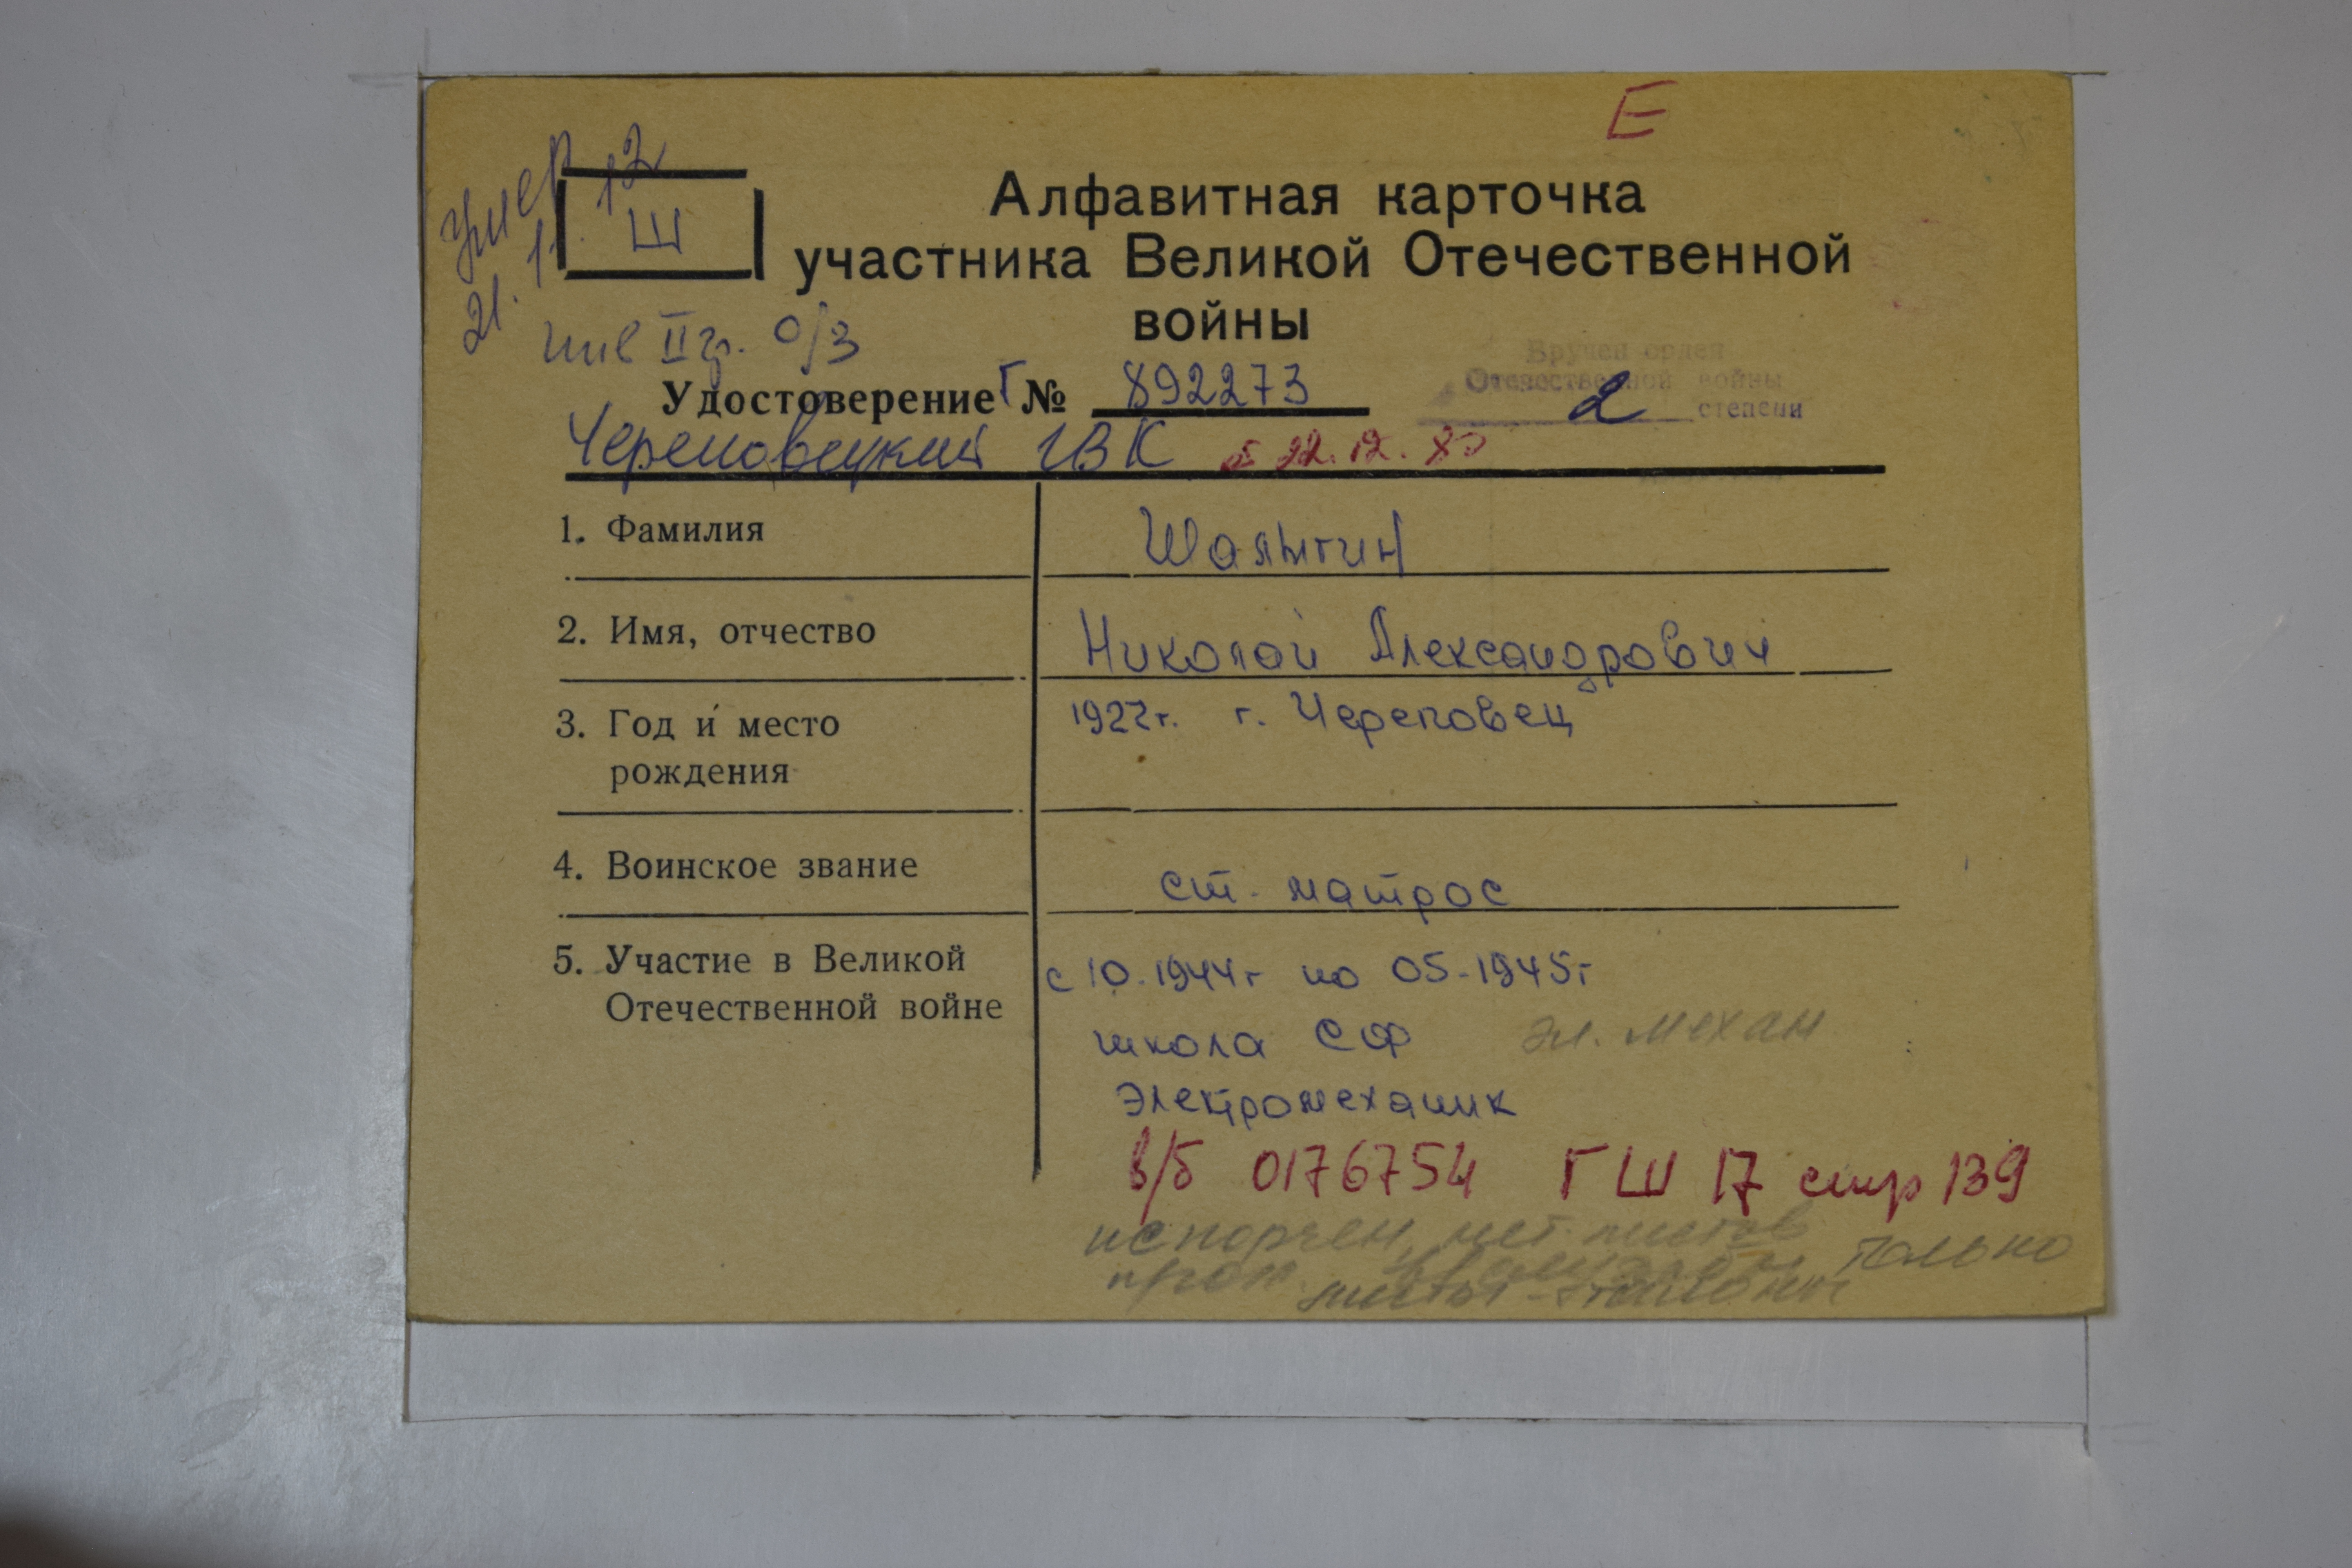 Е
Умер
21. 11. 12
Ш
Алфавитная карточка
участника Великой Отечественной
войны
инв II гр. о/з
Удостоверение Г № 892273
Вручен орден
Отечественной войны
2 степени
Череповецкий ГВК от 22.12.80
1. Фамилия Шалыгин
2. Имя, отчество Николай Александрович
3. Год и место 1927г. г. Череповец
рождения
4. Воинское звание ст. матрос
5. Участие в Великой с 10.1944г по 05-1945г
Отечественной войне
школа СФ эл. механ
Электромеханик
в/б 0176754 ГШ 17 стр 139
испорчен, нет листов
только
листы